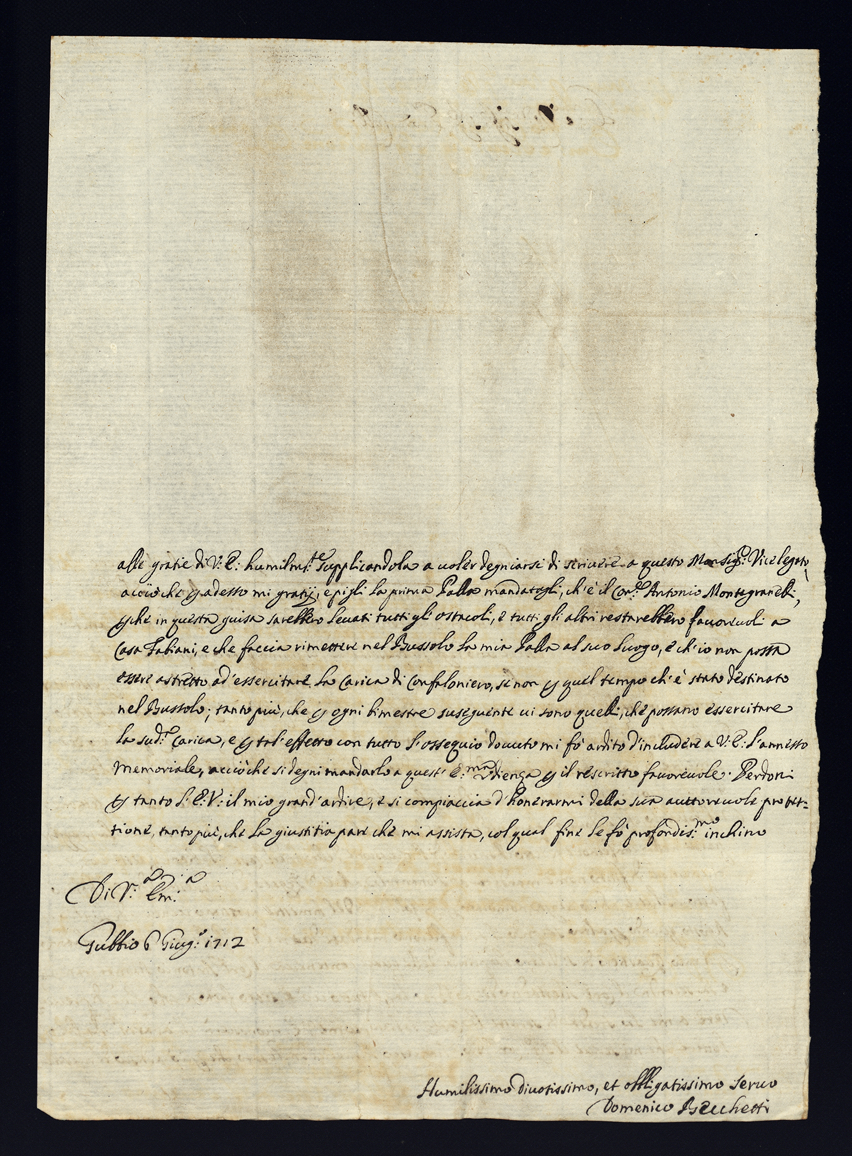 alle gratie di V: E: humilm.te supplicandola a voler degniarsi di scrivere a questo Monsig.r Vicelegato,
acciò che p adesso mi gratij, e pigli la prima Palla mandategli, ch'è il Antonio Montegranelli,
p che in questa guisa sarebbero levati tutti gli ostacoli, e tutti gli altri restarebbero favorevoli a
Casa Fabiani, e che faccia rimettere nel Bussolo la mia Palla al suo luogo, e ch'io non possa
essere astretto ad'essercitare la Carica di Confaloniero, se non p quel tempo ch'è stato destinato
nel Bussolo; tanto più, che p ogni bimestre suseguente vi sono quelli, che possano essercitare
la sud.a Carica, e p tal'effetto con tutto l'ossequio dovuto mi fò ardito d'includere a V: E: l'annesso
Memoriale, acciò che si degni mandarlo a quest' p il rescritto favorevole. Perdoni
p tanto l'E: V: il mio grand'ardire, e si compiaccia d'honorarmi della sua auttorevole protet=
tione, tanto più, che la giustitia pare che mi assista, col qual fine le fò profondis.mo inchino
Di V.a Em.a
Gubbio 6 Giug.o 1712
Humilissimo divotissimo, et obbligatissimo servo
Domenico